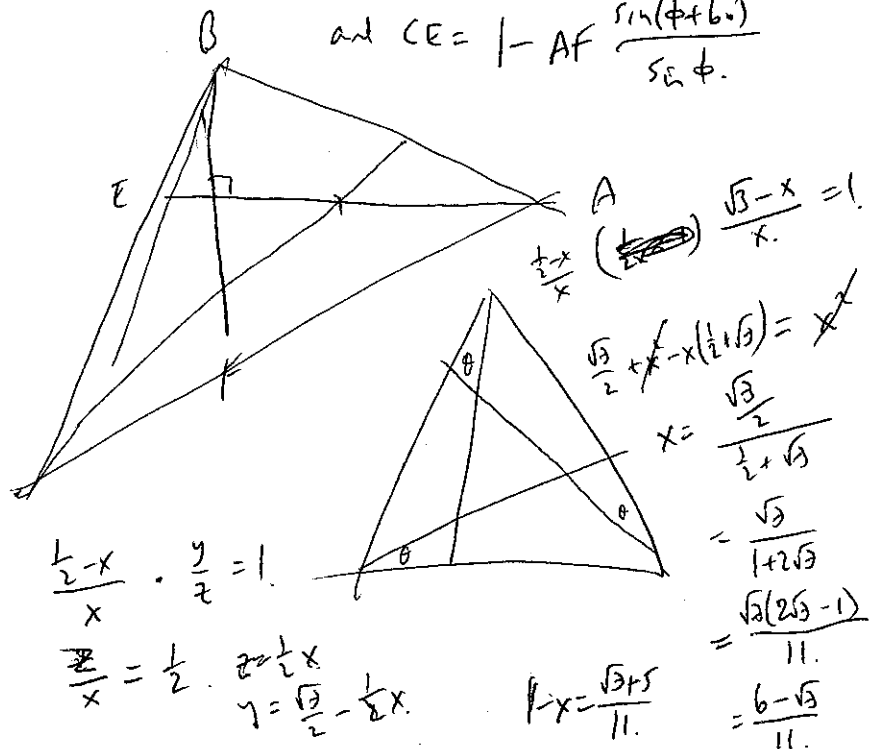 B
and CE = 1 - AF sin(φ+60) / sin φ.
E
A
(1/2 - x)/x (√3 - x)/x. = 1.
√3/2 + x² - x(1/2 + √3) = x²
x = (√3/2) / (1/2 + √3)
= √3 / (1+2√3)
= √3(2√3 - 1) / 11.
= (6 - √3) / 11.
θ
θ
θ
(1/2 - x)/x · y/z = 1.
z/x = 1/2. z = 1/2 x
y = √3/2 - 1/2 x.
1 - x = (√3 + 5) / 11.